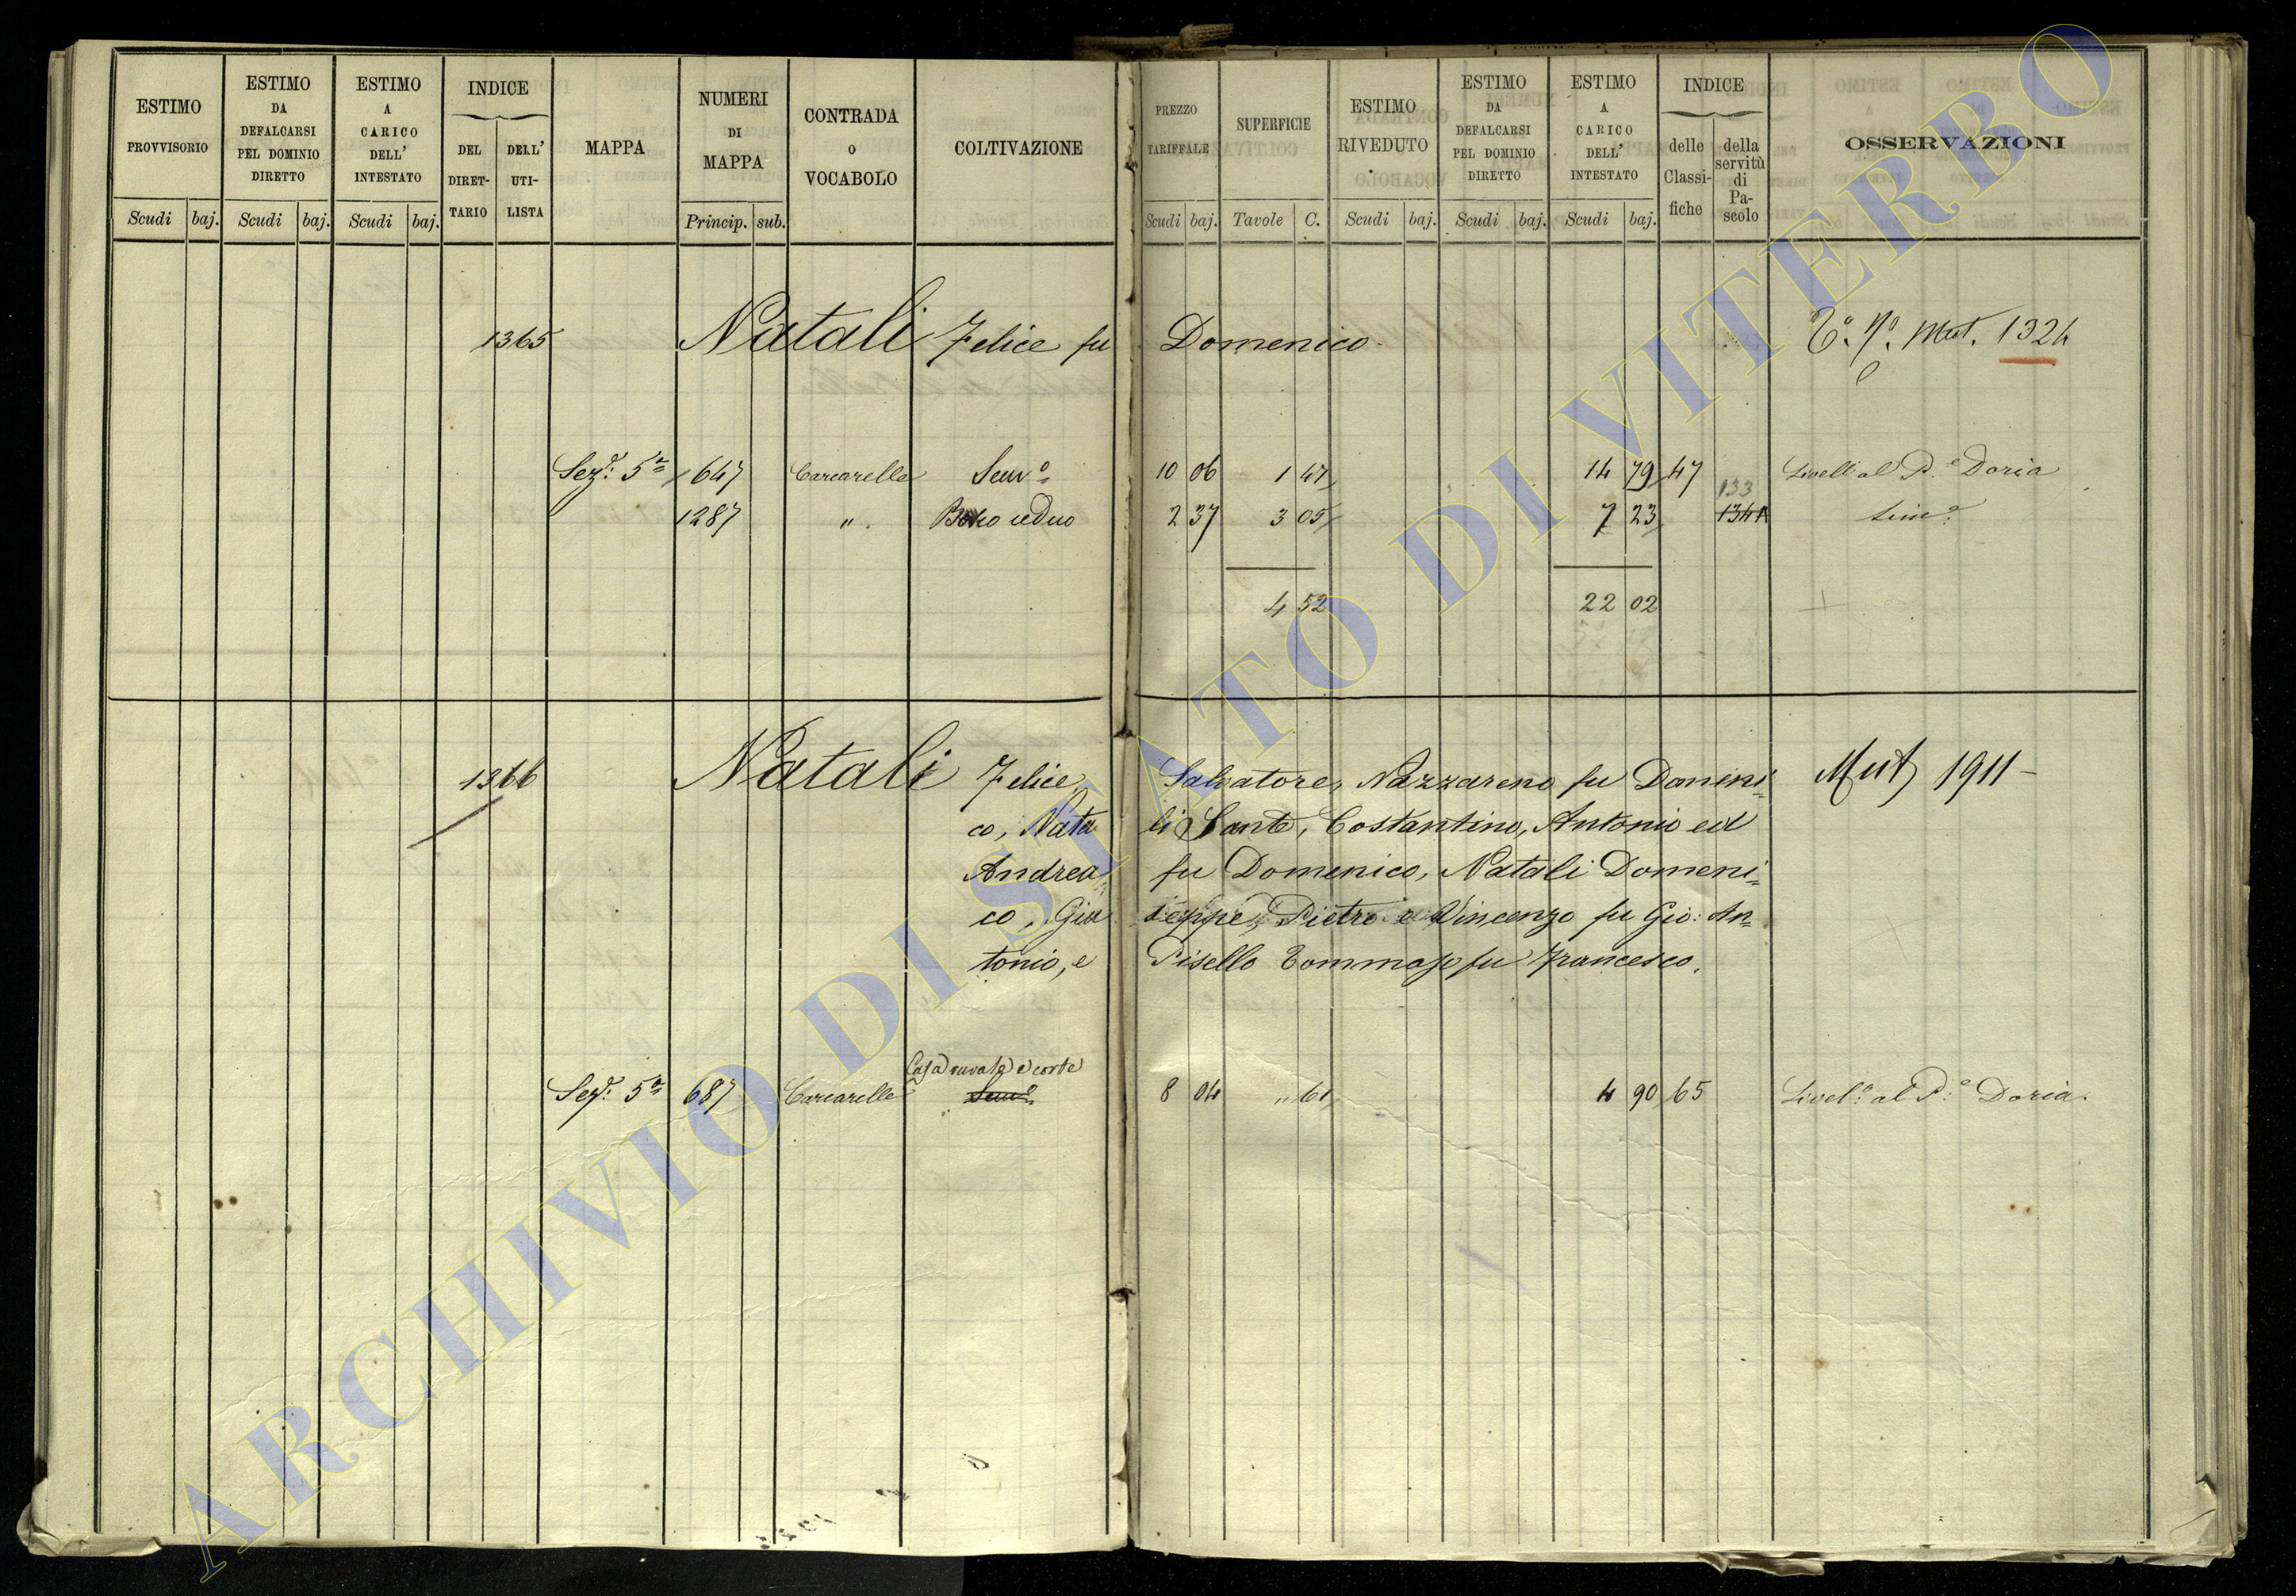 ESTIMO PROVVISORIO
ESTIMO DA DEFALCARSI PEL DOMINIO DIRETTO
ESTIMO A CARICO DELL' INTESTATO
INDICE
DEL DIRET- TARIO
DELL' UTI- LISTA
MAPPA
NUMERI DI MAPPA
CONTRADA O VOCABOLO
COLTIVAZIONE
Scudi baj. Scudi baj. Scudi baj. Princip. sub.
PREZZO TARIFFALE
SUPERFICIE
ESTIMO RIVEDUTO
ESTIMO DA DEFALCARSI PEL DOMINIO DIRETTO
ESTIMO A CARICO DELL' INTESTATO
INDICE
delle Classi- fiche
della servitù di Pa- scolo
OSSERVAZIONI
Scudi baj. Tavole C. Scudi baj. Scudi baj. Scudi baj.
1365 Natali Felice fu Domenico Mut. 1324
Sez. 5a 647 Carcarelle Semo 10 06 1 47 14 79 47 Livello al Pe Doria
133
1287 " Bosco ceduo 2 37 3 05 7 23 1341 Simo
4 52 22 02
1366 Natali Felice, Salvatore, Nazzareno fu Domeni= Mut 1911 -
co, Natali Sante, Costantino, Antonio ed
Andrea fu Domenico, Natali Domeni=
co, Giuseppe, Pietro e Vincenzo fu Gio: An=
tonio, e Pisello Tommaso fu Francesco.
Casa e corte
Sez. 5a 687 Carcarelle Semo 8 04 " 61 4 90 65 Livelo al Pe Doria.
ARCHIVIO DI STATO DI VITERBO